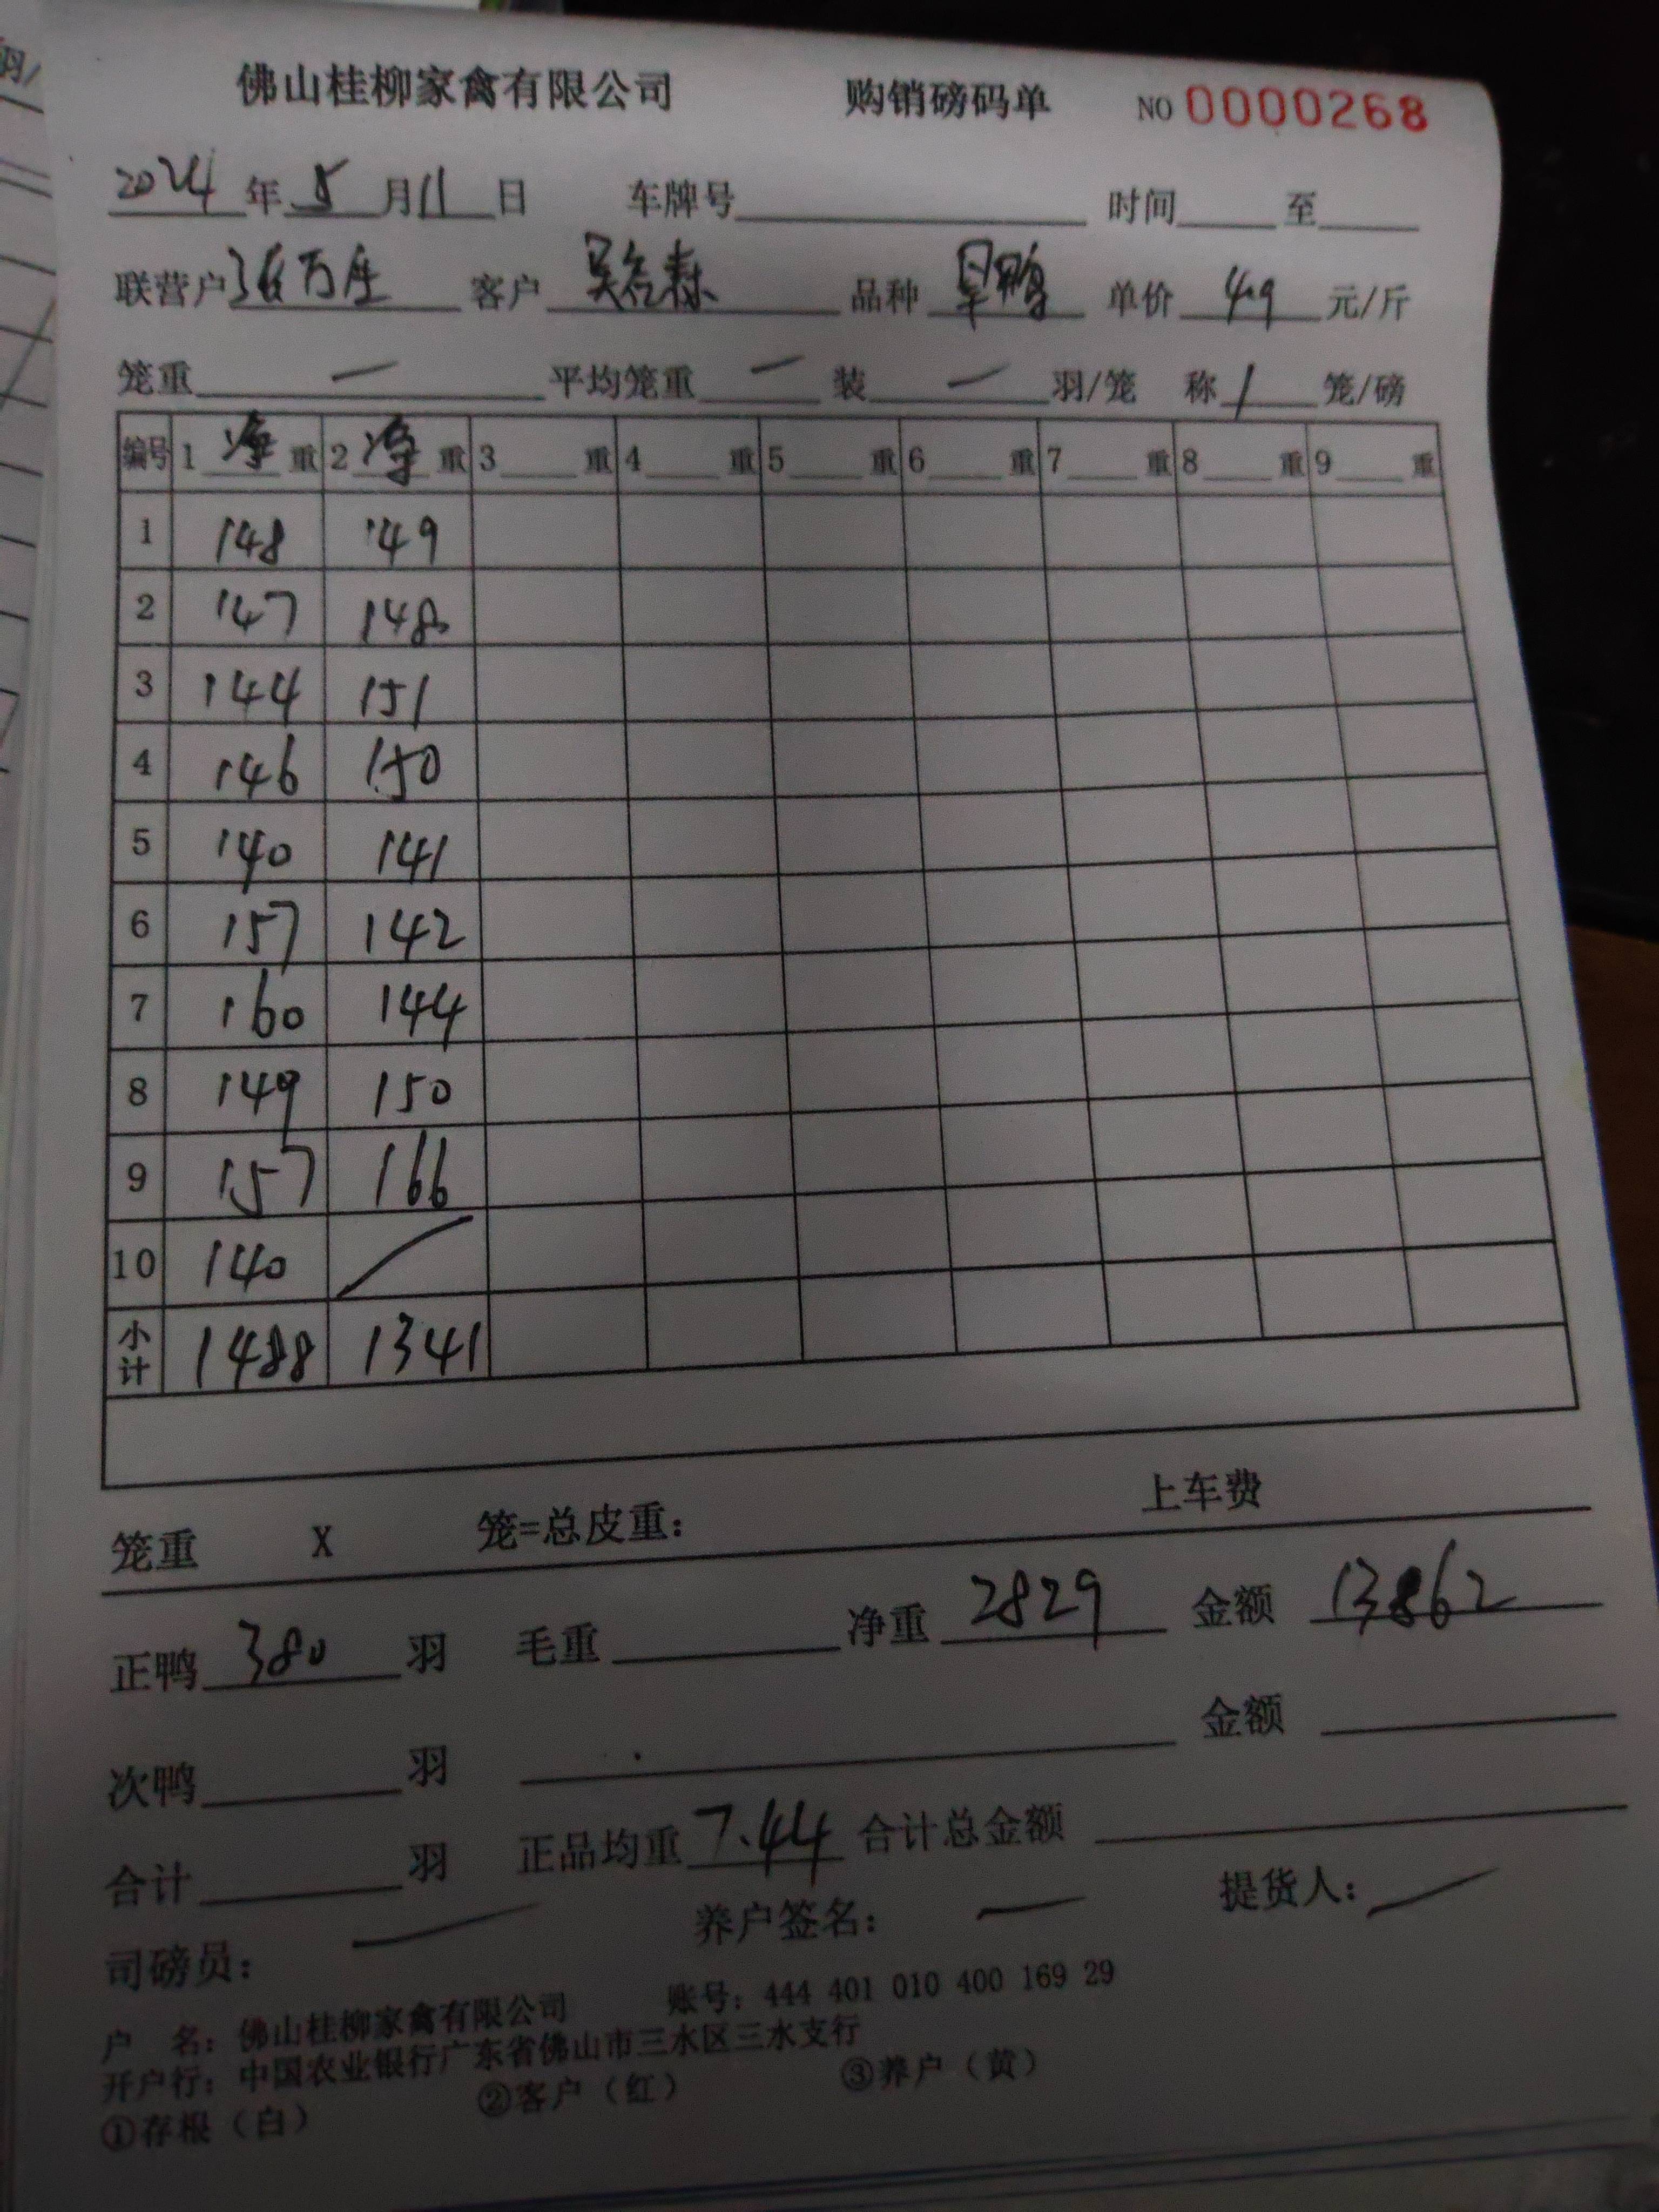 佛山桂柳家禽有限公司 购销磅码单 NO 0000268
2024年5月11日 车牌号 时间 至
联营户 万 客户 吴 品种 旱鸭 单价 4.9 元/斤
笼重 一 平均笼重 一 装 一 羽/笼 称 1 笼/磅
编号 1 净 重 2 净 重 3 重 4 重 5 重 6 重 7 重 8 重 9 重
1 148 149
2 147 148
3 144 151
4 146 150
5 140 141
6 157 142
7 160 144
8 149 150
9 157 166
10 140 /
小计 1488 1341
笼重 X 笼=总皮重: 上车费
正鸭 380 羽 毛重 净重 2829 金额 13862
次鸭 羽 金额
合计 羽 正品均重 7.44 合计总金额
司磅员: 养户签名: 提货人:
户 名: 佛山桂柳家禽有限公司 账号: 444 401 010 400 169 29
开户行: 中国农业银行广东省佛山市三水区三水支行
①存根（白） ②客户（红） ③养户（黄）